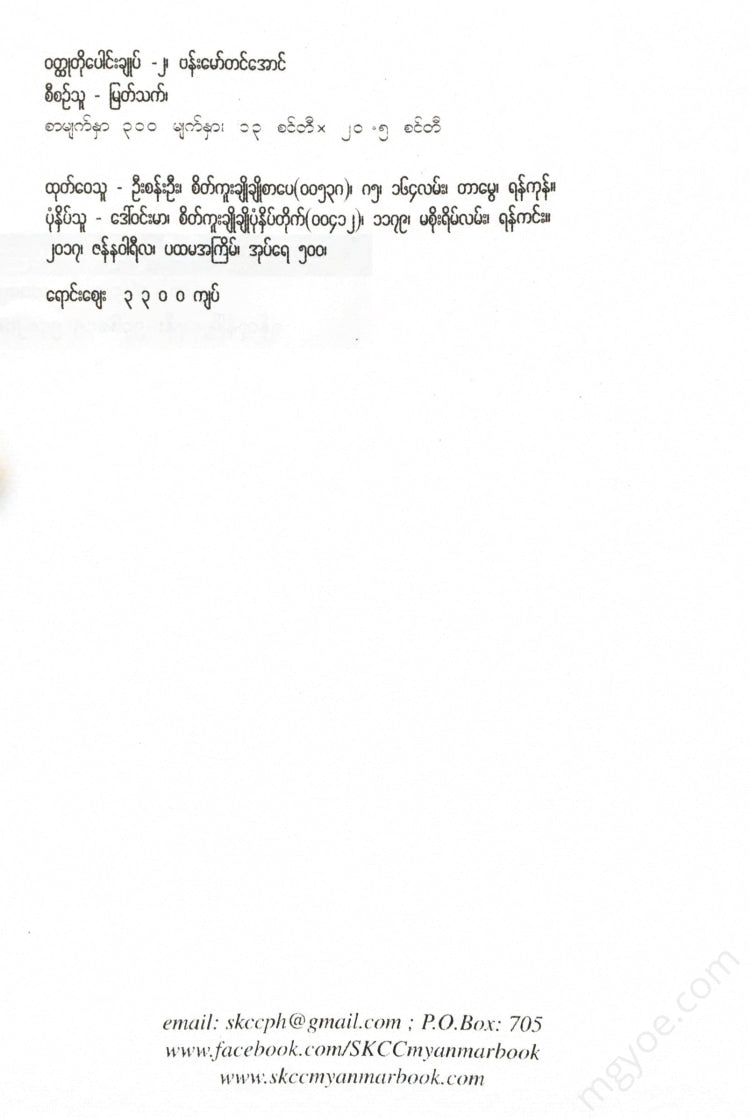 ဝတ္ထုတိုပေါင်းချုပ် -၂၊ ဗန်းမော်တင်အောင်
စီစဉ်သူ - မြတ်သက်၊
စာမျက်နှာ ၃၁၀ မျက်နှာ၊ ၁၃ စင်တီ× ၂၀ .၅ စင်တီ
ထုတ်ဝေသူ - ဦးစန်းဦး၊ စိတ်ကူးချိုချိုစာပေ(၀၀၅၃၈)၊ ဂ၅၊ ၁၆၄လမ်း၊ တာမွေ၊ ရန်ကုန်။
ပုံနှိပ်သူ - ဒေါ်ဝင်းမာ၊ စိတ်ကူးချိုချိုပုံနှိပ်တိုက်(၀၀၄၁၂)၊ ၁၁၇၉၊ မစိုးရိမ်လမ်း၊ ရန်ကင်း။
၂၀၁၇၊ ဇန်နဝါရီလ၊ ပထမအကြိမ်၊ အုပ်ရေ ၅၀၀၊
ရောင်းဈေး ၃ ၃ ၀ ၀ ကျပ်
email: skccph@gmail.com ; P.O.Box: 705
www.facebook.com/SKCCmyanmarbook
www.skccmyanmarbook.com
mgyoe.com